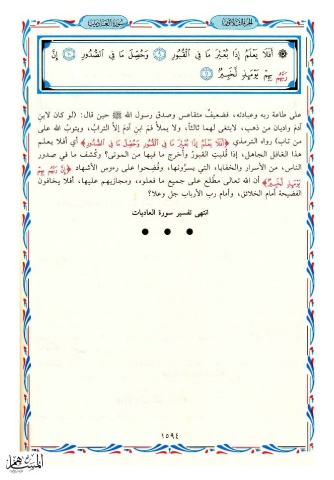 الجزء الثلاثون
سورة العاديات
۞ أَفَلَا يَعْلَمُ إِذَا بُعْثِرَ مَا فِي الْقُبُورِ ٩ وَحُصِّلَ مَا فِي الصُّدُورِ ١٠ إِنَّ
رَبَّهُم بِهِمْ يَوْمَئِذٍ لَّخَبِيرٌ ١١
على طاعة ربه وعبادته، فضعيفٌ متقاعس وصدق رسول الله ﷺ حين قال: (لو كان لابن
آدم واديان من ذهب، لابتغى لهما ثالثاً، ولا يملأ فمَ ابنِ آدمَ إلاَّ الترابُ، ويتوبُ الله على
من تاب) رواه الترمذي ﴿أَفَلَا يَعْلَمُ إِذَا بُعْثِرَ مَا فِي الْقُبُورِ وَحُصِّلَ مَا فِي الصُّدُورِ﴾ أي أفلا يعلم
هذا الغافل الجاهل، إذا قُلبتِ القبورُ وأُخرج ما فيها من الموتى؟ وكُشف ما في صدور
الناس، من الأسرار والخفايا، التي يسرُّونها، وفُضِحوا على رءوس الأشهاد ﴿إِنَّ رَبَّهُم بِهِمْ
يَوْمَئِذٍ لَّخَبِيرٌ﴾ أن الله تعالى مطَّلع على جميع ما فعلوه، ومجازيهم عليها، أفلا يخافون
الفضيحة أمام الخلائق، وأمام رب الأرباب جل وعلا؟
انتهى تفسير سورة العاديات
١٥٩٤